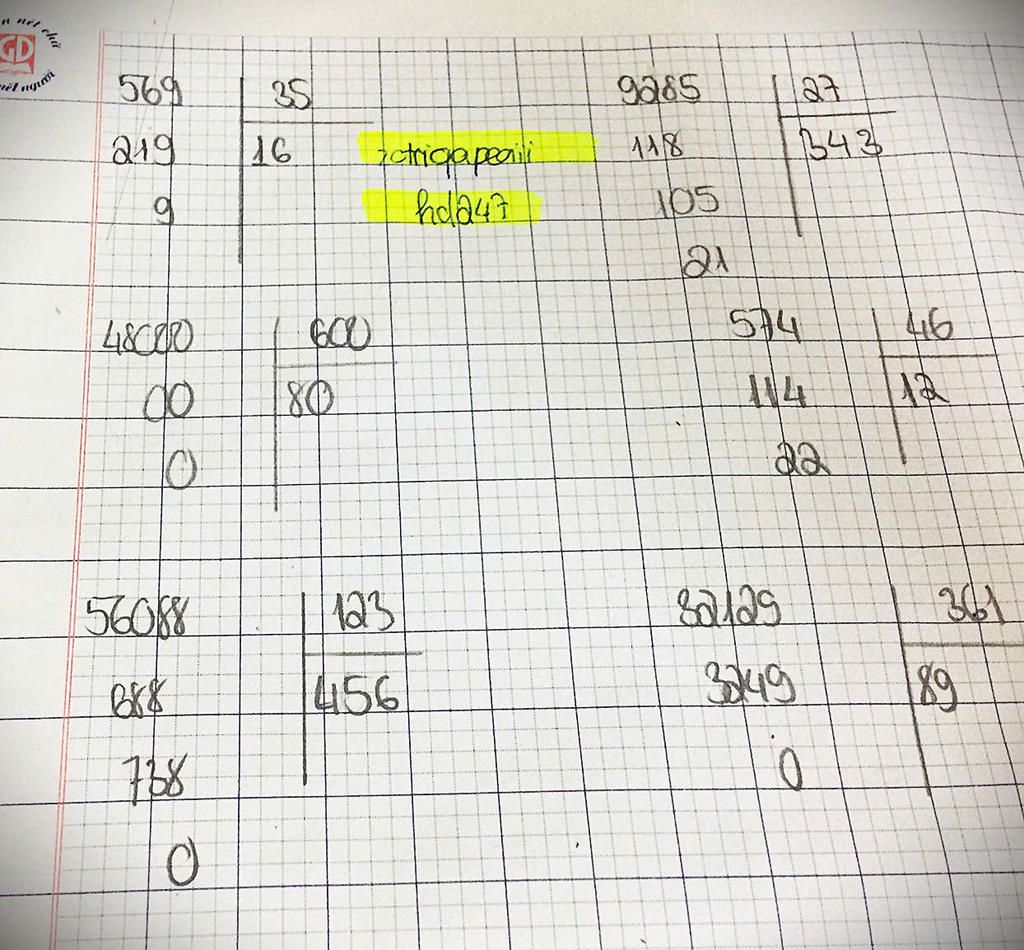 n nét chữ
GD
nết người
569 35
219 16
9
9285 27
118 343
105
21
hd247
48000 600
00 80
0
574 46
114 12
22
56088 123
688 456
738
0
32129 361
3249 89
0